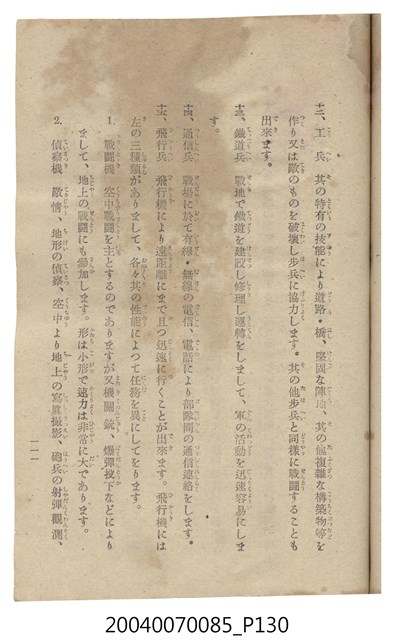 十二、工兵 其の特有の技能により道路・橋、堅固な陣地、其の他複雑な構築物等を
作り又は敵のものを破壊し步兵に協力します。其の他步兵と同樣に戰鬪することも
出來ます。
十三、鐵道兵 戰地で鐵道を建設し修理し運轉をしまして、軍の活動を迅速容易にしま
す。
十四、通信兵 戰場に於て有線・無線の電信、電話により部隊間の通信連絡をします。
十五、飛行兵 飛行機により遠距離にまで且つ迅速に行くことが出來ます。飛行機には
左の三種類がありまして、各々其の性能によつて任務を異にしてをります。
1. 戰鬪機 空中戰鬪を主とするのでありますが又機關銃、爆彈投下などにより
まして、地上の戰鬪にも參加します。形は小形で速力は非常に大であります。
2. 偵察機 敵情、地形の偵察、空中より地上の寫眞撮影、砲兵の射彈觀測、
一一一
20040070085_P130